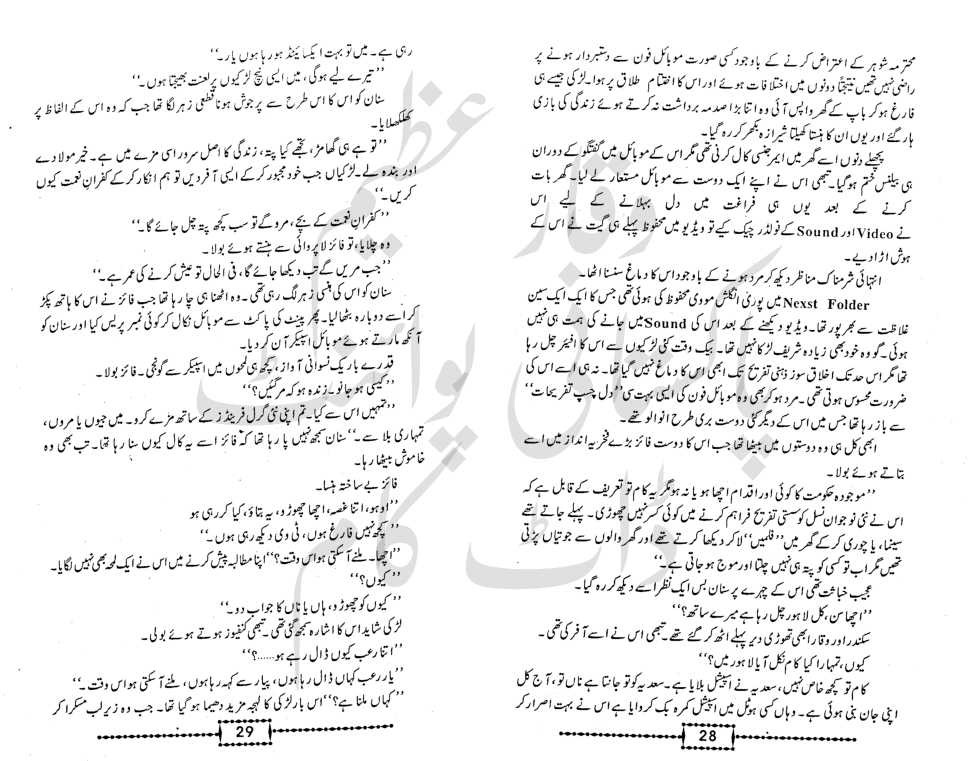 محترمہ شوہر کے اعتراض کرنے کے باوجود کسی صورت موبائل فون سے دستبردار ہونے پر
راضی نہیں تھیں نتیجتاً دونوں میں اختلافات ہوئے اور اس کا اختتام طلاق پر ہوا۔ لڑکی جیسے ہی
فارغ ہو کر باپ کے گھر واپس آئی وہ اتنا بڑا صدمہ برداشت نہ کرتے ہوئے زندگی کی بازی
ہار گئے اور یوں ان کا ہنستا کھیلتا شیرازہ بکھر کر رہ گیا۔
پچھلے دنوں اسے گھر میں ایمرجنسی کال کرنی تھی مگر اس کے موبائل میں گفتگو کے دوران
ہی بیلنس ختم ہو گیا۔ تبھی اس نے اپنے ایک دوست سے موبائل مستعار لے لیا۔ گھر بات
کرنے کے بعد یوں ہی فراغت میں دل بہلانے کے لیے اس
نے Video اور Sound کے فولڈر چیک کیے تو ویڈیو میں محفوظ پہلے ہی گیت نے اس کے
ہوش اڑا دیے۔
انتہائی شرمناک مناظر دیکھ کر مرد ہونے کے باوجود اس کا دماغ سنسنا اٹھا۔
Nexst Folder میں پوری انگلش مووی محفوظ کی ہوئی تھی جس کا ایک ایک سین
غلاظت سے بھرپور تھا۔ ویڈیو دیکھنے کے بعد اس کی Sound میں جانے کی ہمت ہی نہیں
ہوئی۔ گو وہ خود بھی زیادہ شریف لڑکا نہیں تھا۔ بیک وقت کئی لڑکیوں سے اس کا افیئر چل رہا
تھا مگر اس حد تک اخلاق سوز ذہنی تفریح تک ابھی اس کا دماغ نہیں گیا تھا۔ نہ ہی اسے اس کی
ضرورت محسوس ہوتی تھی۔ مرد ہو کر بھی وہ موبائل فون کی ایسی بہت سی ’’دل چسپ تفریحات‘‘
سے باز رہا تھا جس میں اس کے دیگر کئی دوست بری طرح انوالو تھے۔
ابھی کل ہی وہ دوستوں میں بیٹھا تھا جب اس کا دوست فائز بڑے فخریہ انداز میں اسے
بتاتے ہوئے بولا۔
’’موجودہ حکومت کا کوئی اور اقدام اچھا ہو یا نہ ہو مگر یہ کام تو تعریف کے قابل ہے کہ
اس نے نئی نوجوان نسل کو سستی تفریح فراہم کرنے میں کوئی کسر نہیں چھوڑی۔ پہلے جاتے تھے
سینما، یا چوری کر کے گھر میں ’’فلمیں‘‘ لا کر دیکھا کرتے تھے اور گھر والوں سے جوتیاں پڑتی
تھیں مگر اب تو کسی کو پتہ ہی نہیں چلتا اور موج ہو جاتی ہے۔‘‘
عجیب خباثت تھی اس کے چہرے پر سنان بس ایک نظر اسے دیکھ کر رہ گیا۔
’’اچھا سن، کل لاہور چل رہا ہے میرے ساتھ؟‘‘
سکندر اور وقار ابھی تھوڑی دیر پہلے اٹھ کر گئے تھے۔ تبھی اس نے اسے آفر کی تھی۔
کیوں، تمہارا کیا کام نکل آیا لاہور میں؟‘‘
کام تو کچھ خاص نہیں، سعدیہ نے اسپیشل بلایا ہے۔ سعدیہ کو تو جانتا ہے ناں تو، آج کل
اپنی جان بنی ہوئی ہے۔ وہاں کسی ہوٹل میں اسپیشل کمرہ بک کروایا ہے اس نے بہت اصرار کر
28
رہی ہے۔ میں تو بہت ایکسائیٹڈ ہو رہا ہوں یار۔‘‘
’’تیرے لیے ہوگی، میں ایسی نیچ لڑکیوں پر لعنت بھیجتا ہوں۔‘‘
سنان کو اس کا اس طرح سے پرجوش ہونا قطعی زہر لگا تھا جب کہ وہ اس کے الفاظ پر
کھلکھلایا۔
’’تو ہے ہی گھامڑ، تجھے کیا پتہ، زندگی کا اصل سرور اسی مزے میں ہے۔ خیر مولا دے
اور بندہ لے۔ لڑکیاں جب خود مجبور کر کے ایسی آفر دیں تو ہم انکار کر کے کفران نعمت کیوں
کریں۔‘‘
’’کفران نعمت کے بچے، مرو گے تو سب کچھ پتہ چل جائے گا۔‘‘
وہ چلایا، تو فائز لاپروائی سے ہنستے ہوئے بولا۔
’’جب مریں گے تب دیکھا جائے گا، فی الحال تو عیش کرنے کی عمر ہے۔‘‘
سنان کو اس کی ہنسی زہر لگ رہی تھی۔ وہ اٹھنا ہی چاہ رہا تھا جب فائز نے اس کا ہاتھ پکڑ
کر اسے دوبارہ بٹھا لیا۔ پھر پینٹ کی پاکٹ سے موبائل نکال کر کوئی نمبر پریس کیا اور سنان کو
آنکھ مارتے ہوئے موبائل اسپیکر آن کر دیا۔
قدرے باریک نسوانی آواز، کچھ ہی لمحوں میں اسپیکر سے گونجی۔ فائز بولا۔
’’کیسی ہو جانو۔ زندہ ہو کہ مر گئیں؟‘‘
’’تمہیں اس سے کیا۔ تم اپنی نئی گرل فرینڈز کے ساتھ مزے کرو۔ میں جیوں یا مروں،
تمہاری بلا سے۔‘‘ سنان سمجھ نہیں پا رہا تھا کہ فائز اسے یہ کال کیوں سنا رہا تھا۔ تب بھی وہ
خاموش بیٹھا رہا۔
فائز بے ساختہ ہنسا۔
’’اوہو، اتنا غصہ، اچھا چھوڑو، یہ بتاؤ، کیا کر رہی ہو
’’کچھ نہیں فارغ ہوں، ٹی وی دیکھ رہی ہوں۔‘‘
’’اچھا۔ ملنے آ سکتی ہو اس وقت؟‘‘ اپنا مطالبہ پیش کرنے میں اس نے ایک لمحہ بھی نہیں لگایا۔
’’کیوں؟‘‘
’’کیوں کو چھوڑو، ہاں یا ناں کا جواب دو۔‘‘
لڑکی شاید اس کا اشارہ سمجھ گئی تھی۔ تبھی کنفیوز ہوتے ہوئے بولی۔
’’اتنا رعب کیوں ڈال رہے ہو......؟‘‘
’’یار رعب کہاں ڈال رہا ہوں، پیار سے کہہ رہا ہوں، ملنے آ سکتی ہو اس وقت۔‘‘
’’کہاں ملنا ہے؟‘‘ اس بار لڑکی کا لہجہ مزید دھیما ہو گیا تھا۔ جب وہ زیر لب مسکرا کر
29
عظیم
وقار
پاکستانی پوائنٹ
ڈاٹ کام